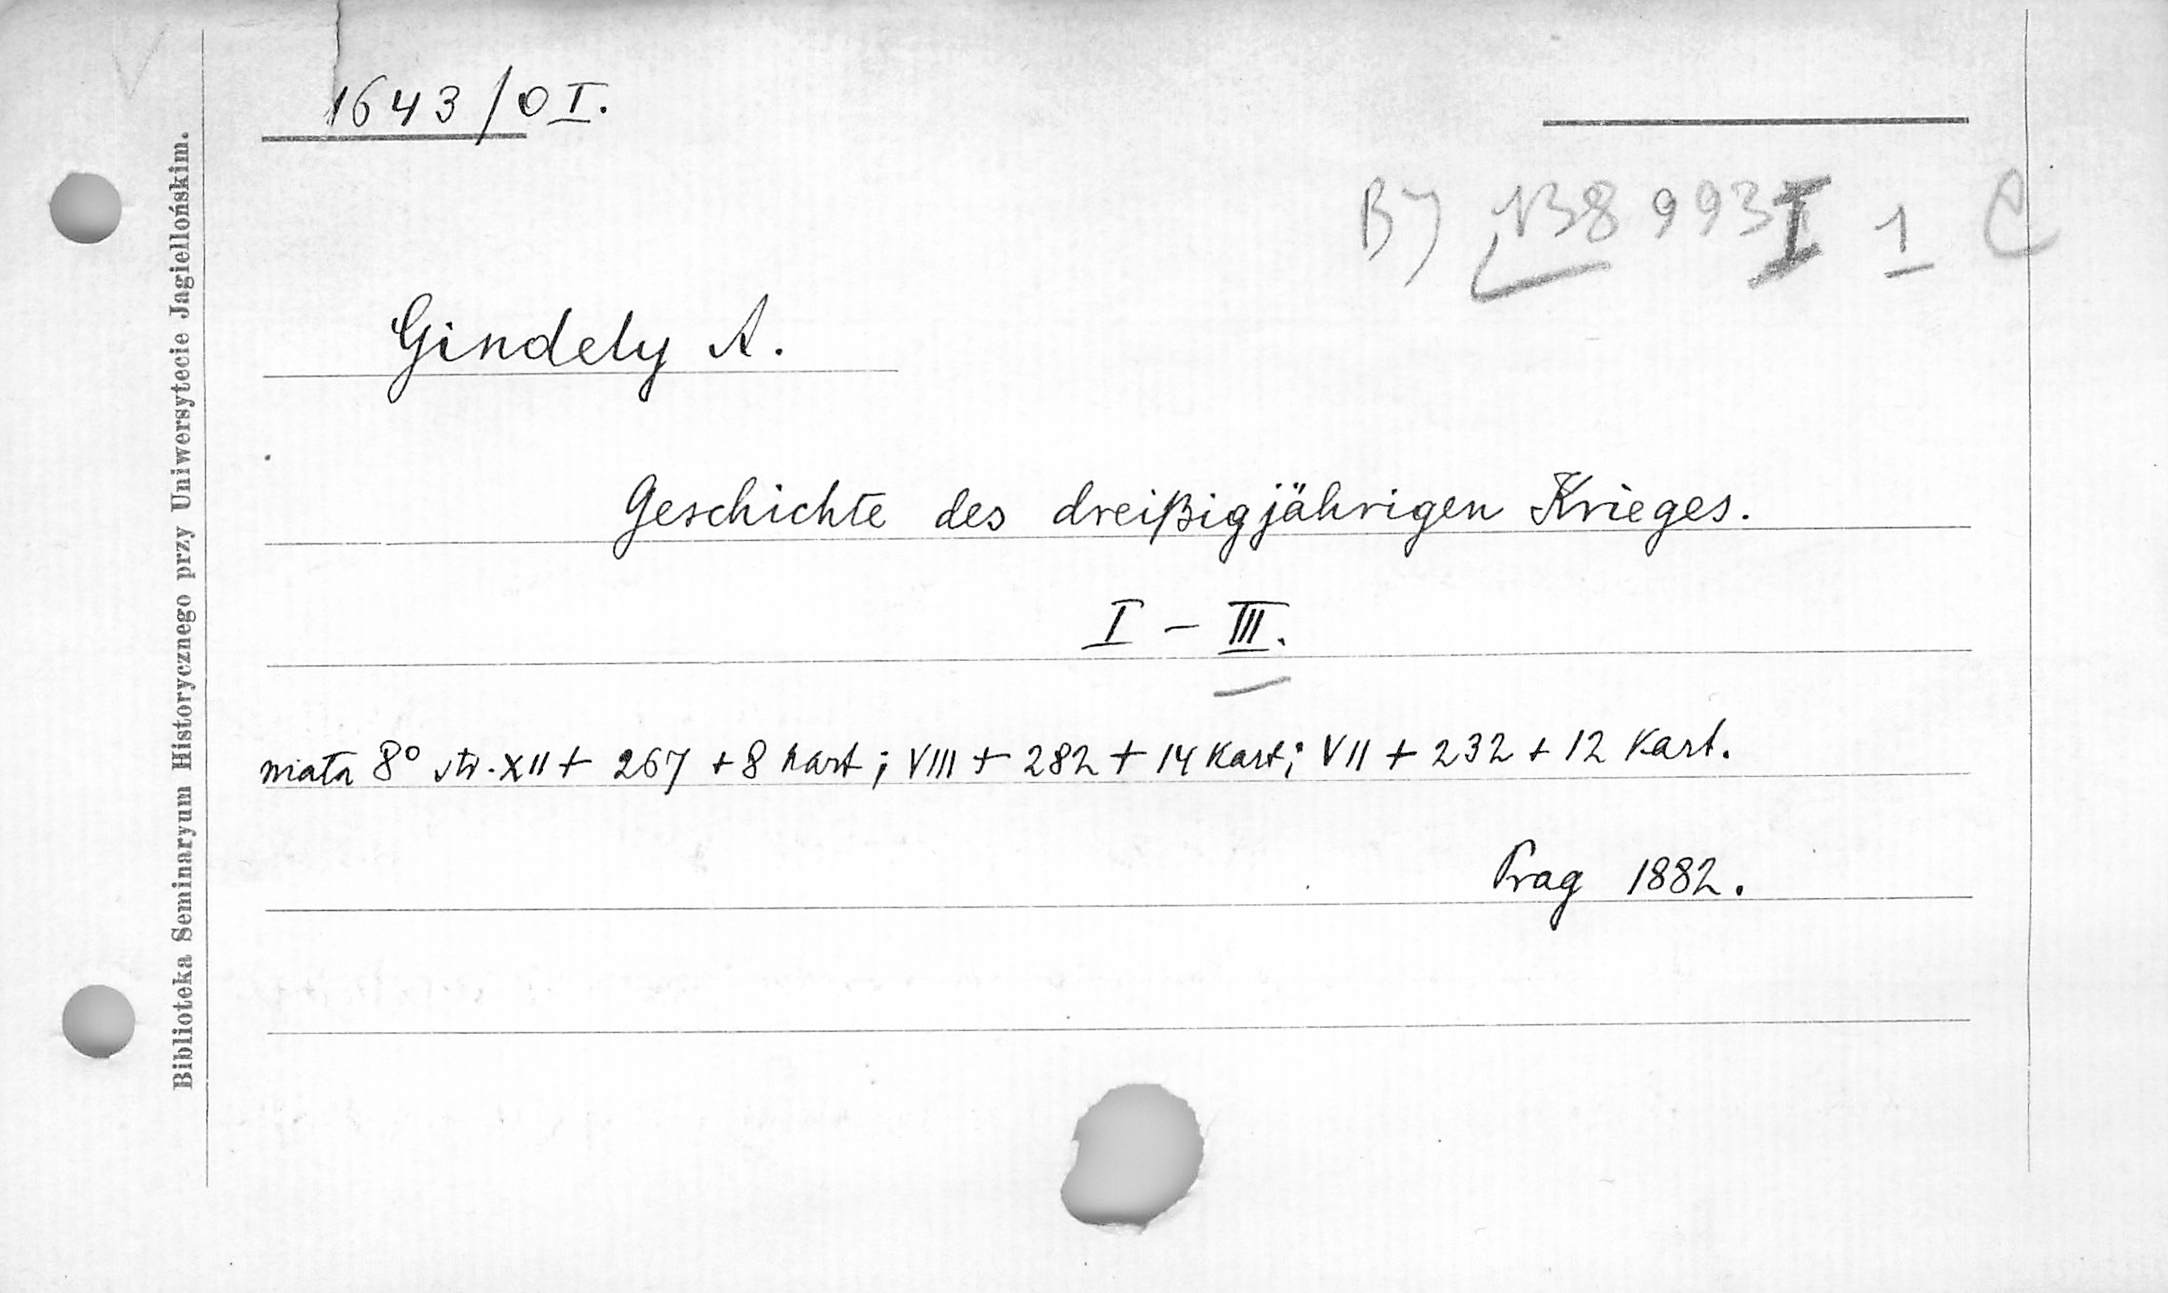 1643/OI.
BJ 138 993 I 1 C
Gindely A.
Geschichte des dreißigjährigen Krieges.
I – III.
mała 8° str. XII + 267 + 8 kart; VIII + 282 + 14 kart; VII + 232 + 12 kart.
Prag 1882.
Biblioteka Seminaryum Historycznego przy Uniwersytecie Jagiellońskim.